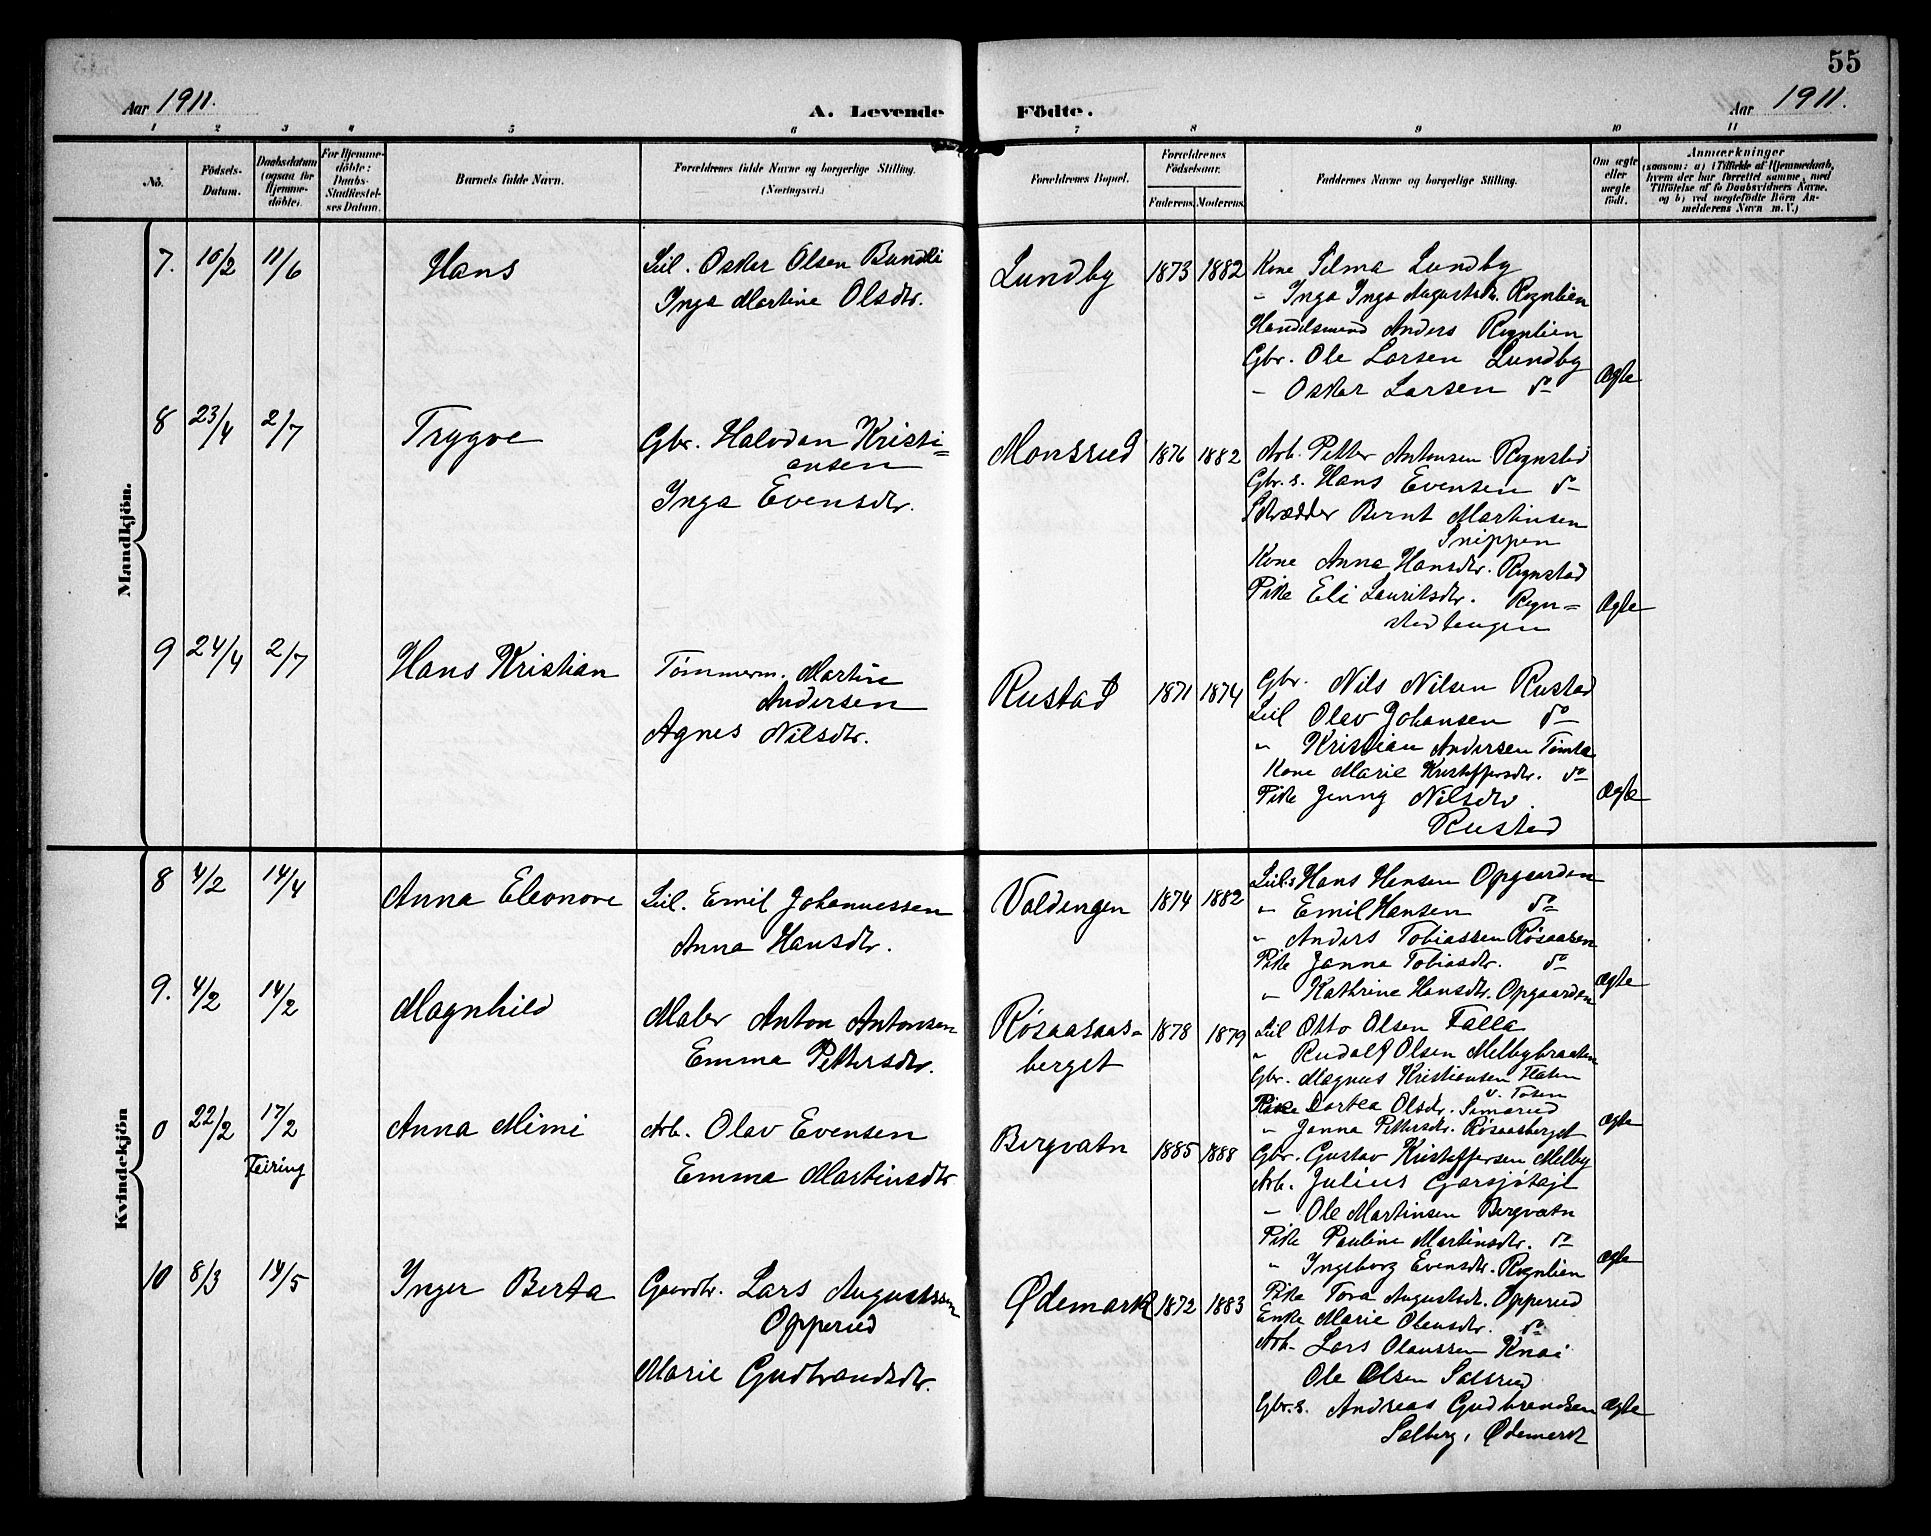 55
Aar 1911.
A. Levende Födte.
Aar 1911.
1 2 3 4 5 6 7 8 9 10 11
No.
Födsels-Datum.
Daabsdatum (ogsaa for Hjemmedöbte).
For Hjemmedöbte: Daabs-Stadfæstelses Datum.
Barnets fulde Navn.
Forældrenes fulde Navne og borgerlige Stilling. (Næringsvei.)
Forældrenes Bopæl.
Forældrenes Födselsaar.
Faderens. Moderens.
Faddernes Navne og borgerlige Stilling.
Om ægte eller uægte født.
Anmærkninger
(saasom: a) i Tilfælde af Hjemmedaab, hvem der har forrettet samme, med Tilföielse af to Daabsvidners Navne, og b) ved uægtefödte Börn Anmelderens Navn m. V.)
Mandkjön.
7. 10/2 11/6 Hans
Leil. Oskar Olsen Bundli
Inga Martine Olsdtr.
Lundby 1873 1882
Kone Selma Lundby
" Inga Inga Augustsdtr. Rognlien
Handelsmand Anders Rognlien
Gbr. Ole Larsen Lundby
" Oskar Larsen do
Ægte
8 23/4 2/7 Trygve
Gbr. Halvdan Kristi=
ansen
Inga Evensdtr.
Monsrud 1876 1882
Arb. Petter Antonsen Rognstad
Gbr. s. Hans Evensen do
Skrædder Bernt Martinsen
Snippen
Kone Anna Hansdtr. Rognstad
Pike Eli Lauritsdtr. Rogn=
stadtangen
Ægte
9 24/4 2/7 Hans Kristian
Tømmerm. Martin
Andersen
Agnes Nilsdtr.
Rustad 1871 1874
Gbr. Nils Nilsen Rustad
Leil Olav Johansen do
" Kristian Andersen Tømta
Kone Marie Kristoffersdtr. do
Pike Jenny Nilsdtr.
Rustad
Ægte
Kvindekjön
8 4/2 14/4 Anna Eleonore
Leil. Emil Johannessen
Anna Hansdtr.
Valdengen 1874 1882
Leil.s Hans Hansen Opgaarden
" Emil Hansen do
" Anders Tobiassen Røsaasen
Pike Janna Tobiasdtr. do
" Kathrine Hansdtr. Opgaarden
Ægte
9. 4/2 14/2 Magnhild
Maler Anton Antonsen
Emma Pettersdtr.
Røsaasaas-
berget
1878 1879
Leil Otto Olsen Falla
" Rudolf Olsen Melbybraaten
Gbr. Magnus Kristiansen
v. Toten
Pike Dortea Olsdtr. Simarud
" Janna Pettersdtr. Røsaasberget
Ægte
0 22/2 17/2 Feiring
Anna Mimi
Arb. Olav Evensen
Emma Martinsdtr
Bergvatn 1885 1888
Gbr. Gustav Kristoffersen Melby
Arb. Julius
" Ole Martinsen Bergvatn
Pike Pauline Martinsdtr. do
" Ingeborg Evensdtr. Rognlien
Ægte
10 8/3 14/5 Inger Berta
Gaardbr. Lars Augustssen
Opperud
Marie Gudbrandsdtr.
Ødemark 1872 1883
Pike Tora Augustsdtr. Opperud
Enke Marie Olensdtr. do
Arb. Lars Olaussen Knai
Ole Olsen Salsrud
Gbr. s. Andreas Gudbrandsen
Salberg, Ødemark
Ægte